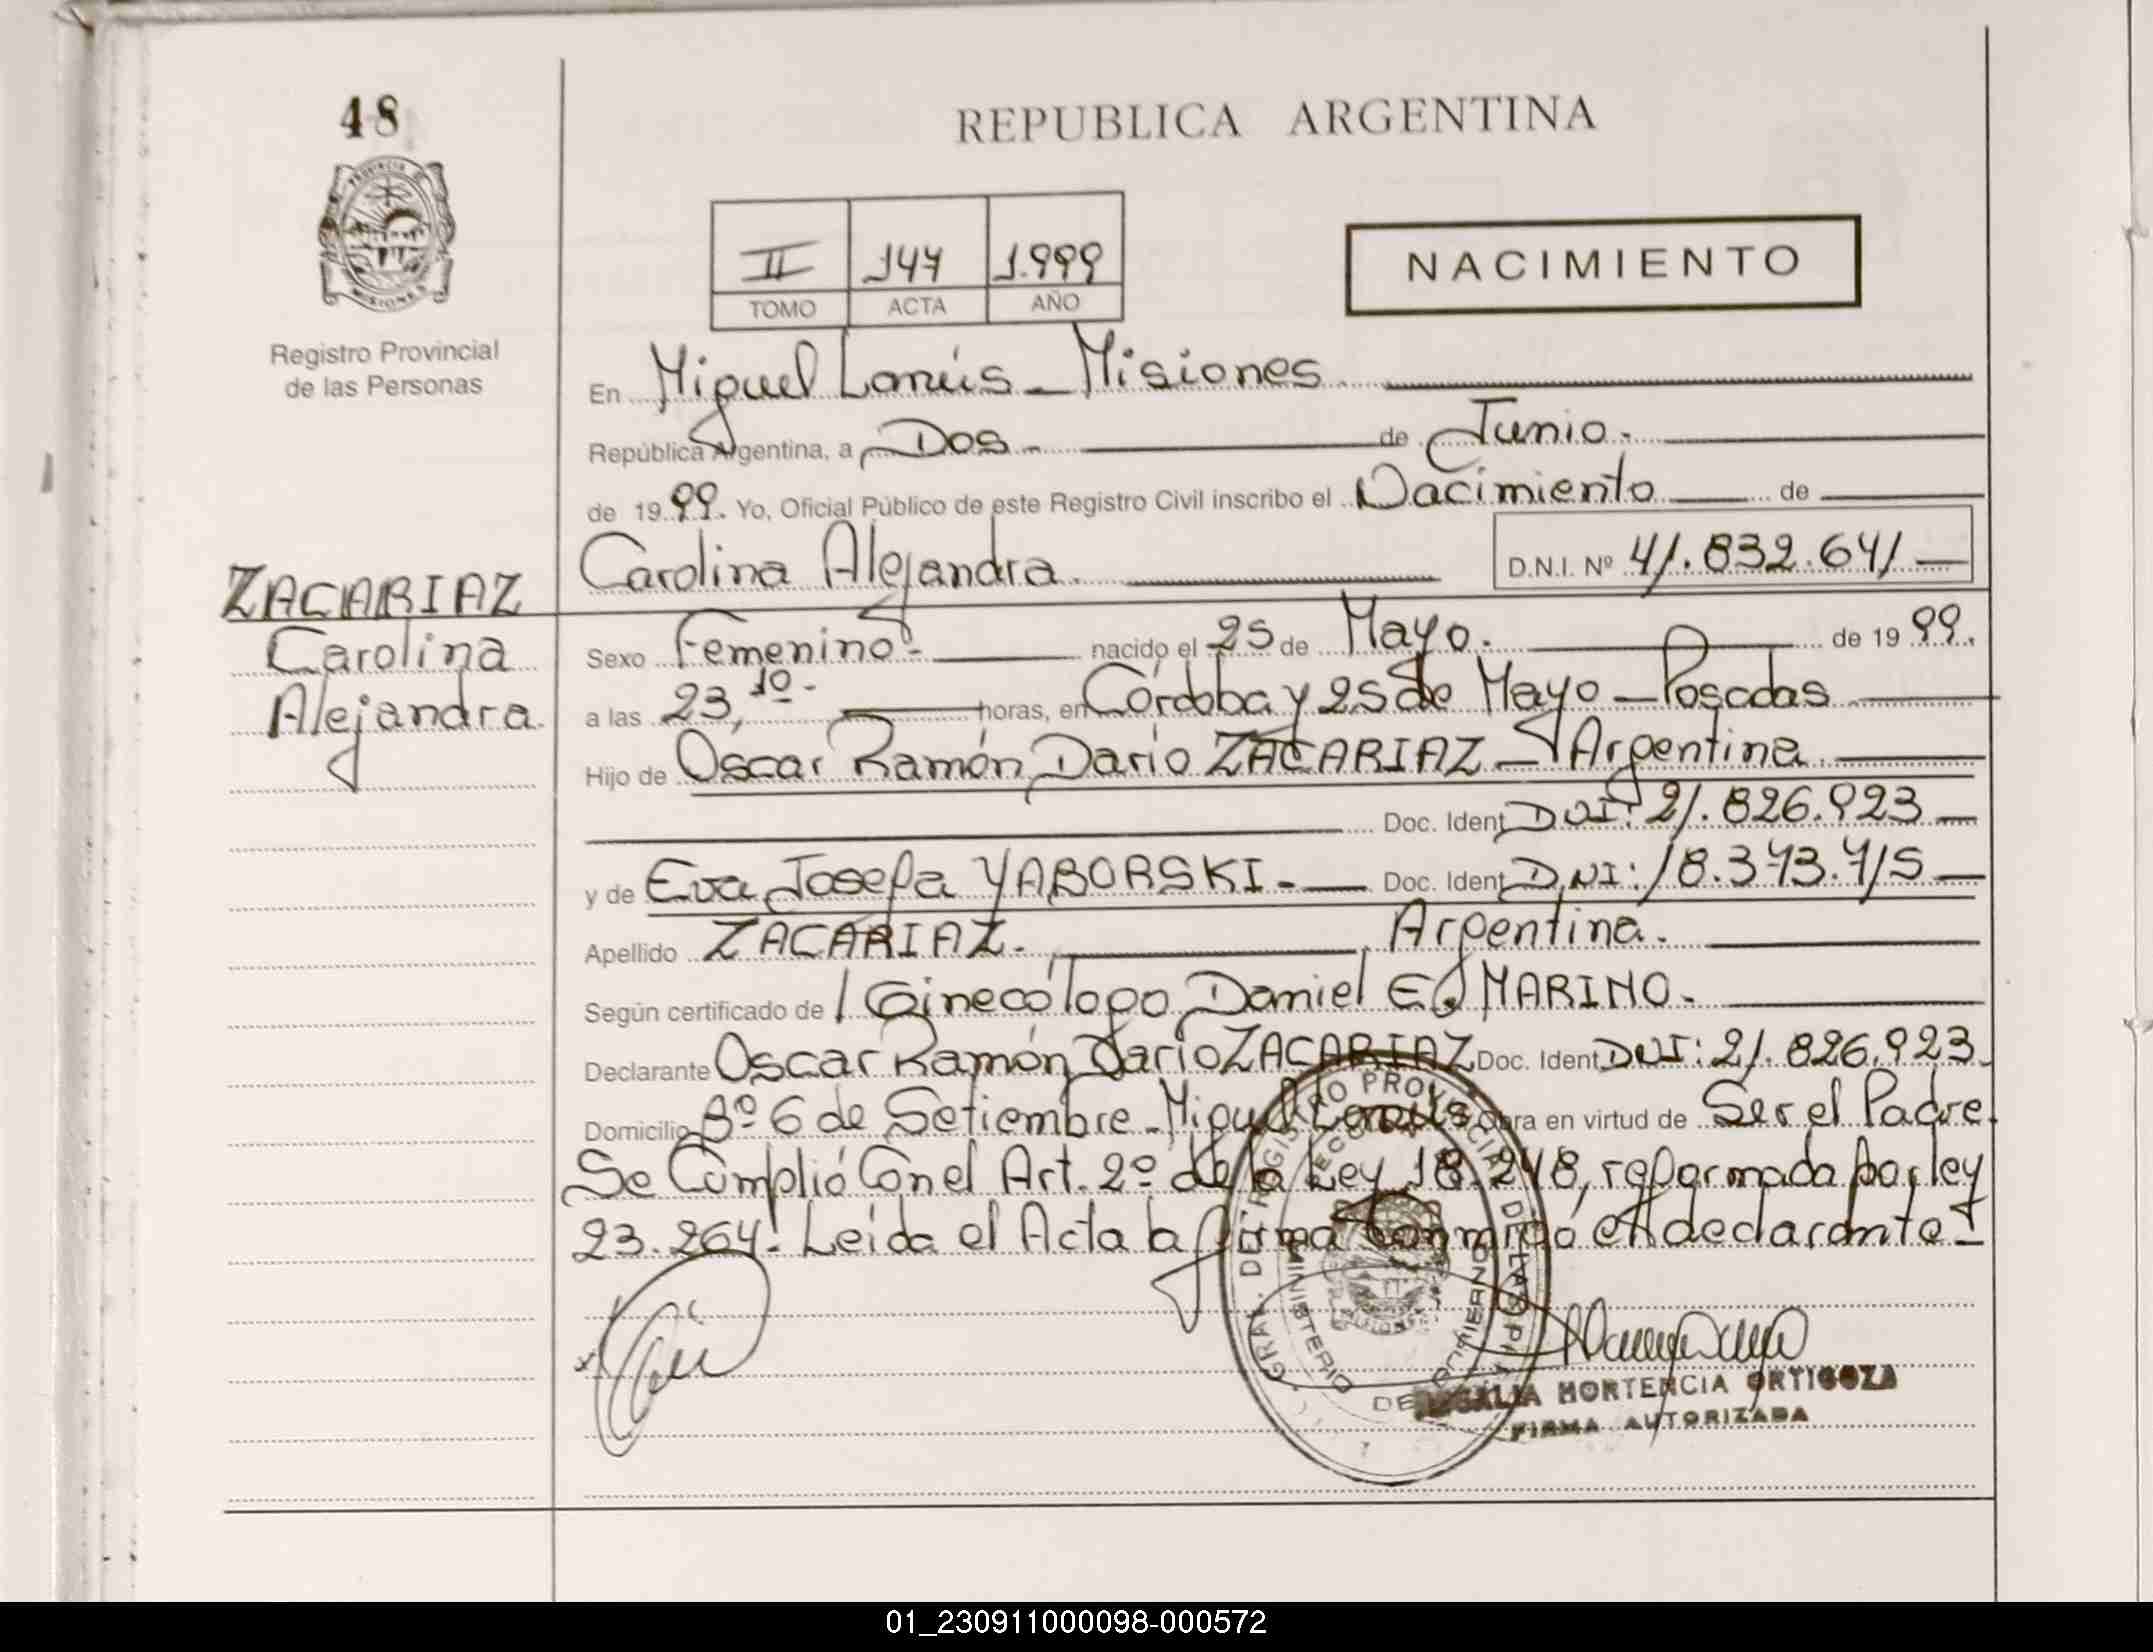 48
REPUBLICA ARGENTINA
PROVINCIA D
MISIONES
Registro Provincial
de las Personas
II 147 1.999
TOMO ACTA AÑO
NACIMIENTO
En Miguel Lanús - Misiones
República Argentina, a Dos - de Junio.
de 1999. Yo, Oficial Público de este Registro Civil inscribo el Nacimiento de
Carolina Alejandra. D.N.I. Nº 41.832.641
ZACARIAZ
Carolina
Alejandra.
Sexo Femenino - nacido el 25 de Mayo. de 1999.
a las 23,10 - horas, en Córdoba y 25 de Mayo - Posadas
Hijo de Oscar Ramón Darío ZACARIAZ - Argentina
Doc. Ident. DNI: 21.826.923
y de Eva Josefa YABORSKI. - Doc. Ident. DNI: 18.373.715
Apellido ZACARIAZ. Argentina.
Según certificado de Ginecólogo Daniel E. MARINO.
Declarante Oscar Ramón Darío ZACARIAZ Doc. Ident. DNI: 21.826.923.
Domicilio Bº 6 de Setiembre - Miguel Lanús Obra en virtud de Ser el Padre.
Se Cumplió Con el Art. 2º de la Ley 18.248, reformada por ley
23.264. Leída el Acta la firma Conmigo el declarante -
REGISTRO PROVINCIAL DE LAS P
DE GOBIERNO
MINISTERIO
HORTENCIA ORTIGOZA
FIRMA AUTORIZADA
01_230911000098-000572